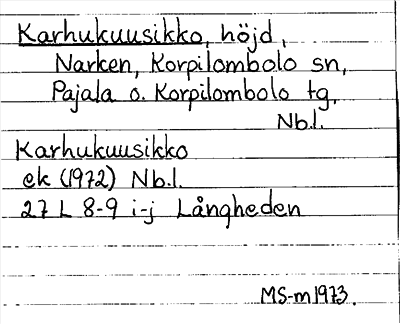 Karhukuusikko, höjd,
Narken, Korpilombolo sn,
Pajala o. Korpilombolo tg,
Nb.l.
Karhukuusikko
ek (1972) Nb.l.
27 L 8-9 i-j Långheden
MS-m 1973.